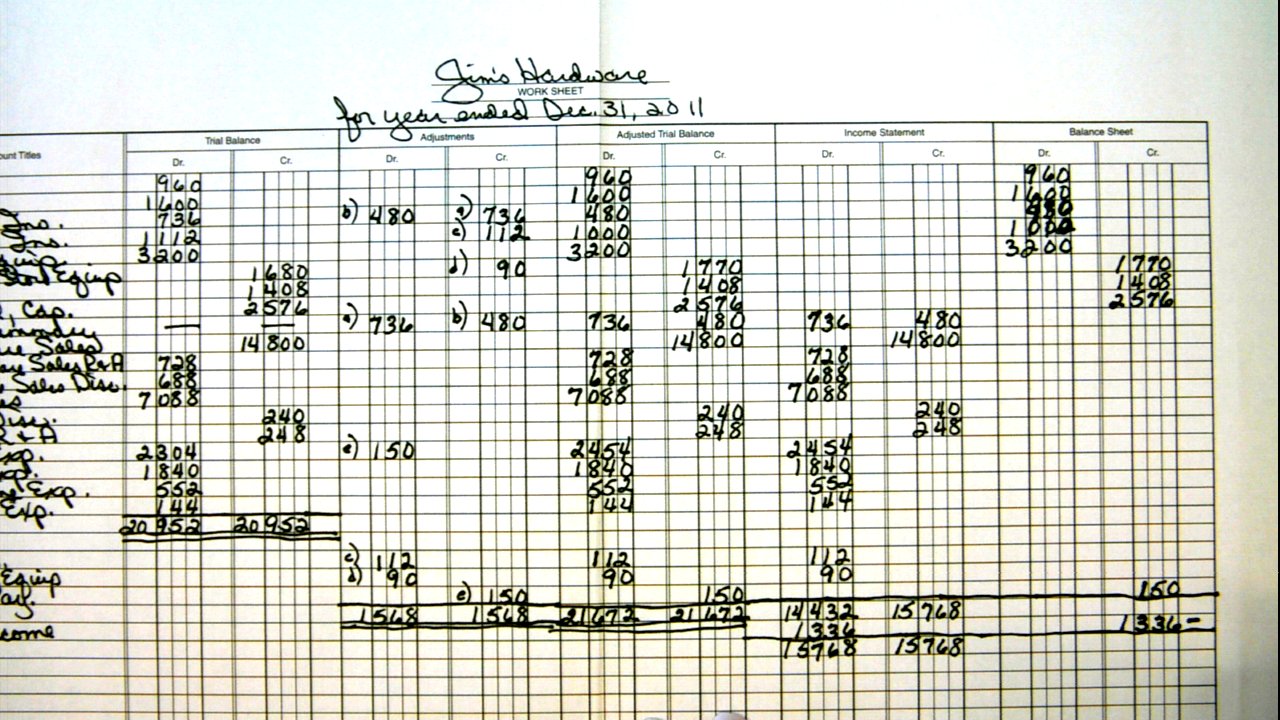 Jim's Hardware
WORK SHEET
for year ended Dec. 31, 2011
Trial Balance Adjustments Adjusted Trial Balance Income Statement Balance Sheet
ount Titles Dr. Cr. Dr. Cr. Dr. Cr. Dr. Cr. Dr. Cr.
960 960 960
1600 1600 1600
Ins. 736 b) 480 a) 736 480 480
Ins. 1112 c) 112 1000 1000
Equip. 3200 3200 3200
Store Equip 1680 d) 90 1770 1770
1408 1408 1408
, Cap. 2576 2576 2576
— — a) 736 b) 480 736 480 736 480
Sales 14800 14800 14800
Sales R+A 728 728 728
Sales Disc. 688 688 688
7088 7088 7088
Disc. 240 240 240
R + A 248 248 248
Exp. 2304 e) 150 2454 2454
Exp. 1840 1840 1840
Exp. 552 552 552
Exp. 144 144 144
20952 20952
c) 112 112 112
Equip d) 90 90 90
Pay. e) 150 150 150
1568 1568 21672 21672 14432 15768
come 1336 1336-
15768 15768